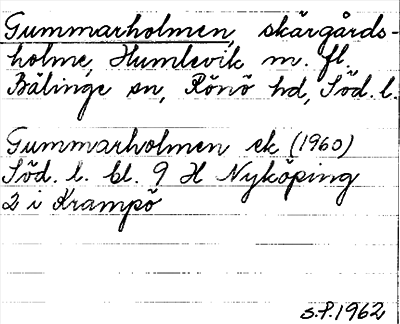 Gummarholmen, skärgårds-
holme, Humlevik m. fl.
Bälinge sn, Rönö hd, Söd. l.
Gummarholmen ek (1960)
Söd. l. bl. 9 H Nyköping
2 i Krampö
S.P. 1962